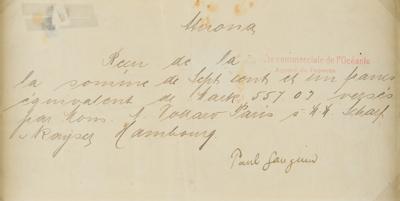 Atuona
Recu de la Sté commerciale de l'Océanie
la somme de Sept cent et un francs
équivalent de Mark 557 07 versés
par Mons. A. Vollard Paris à MM Scharf
& Kayser Hambourg
Paul Gauguin